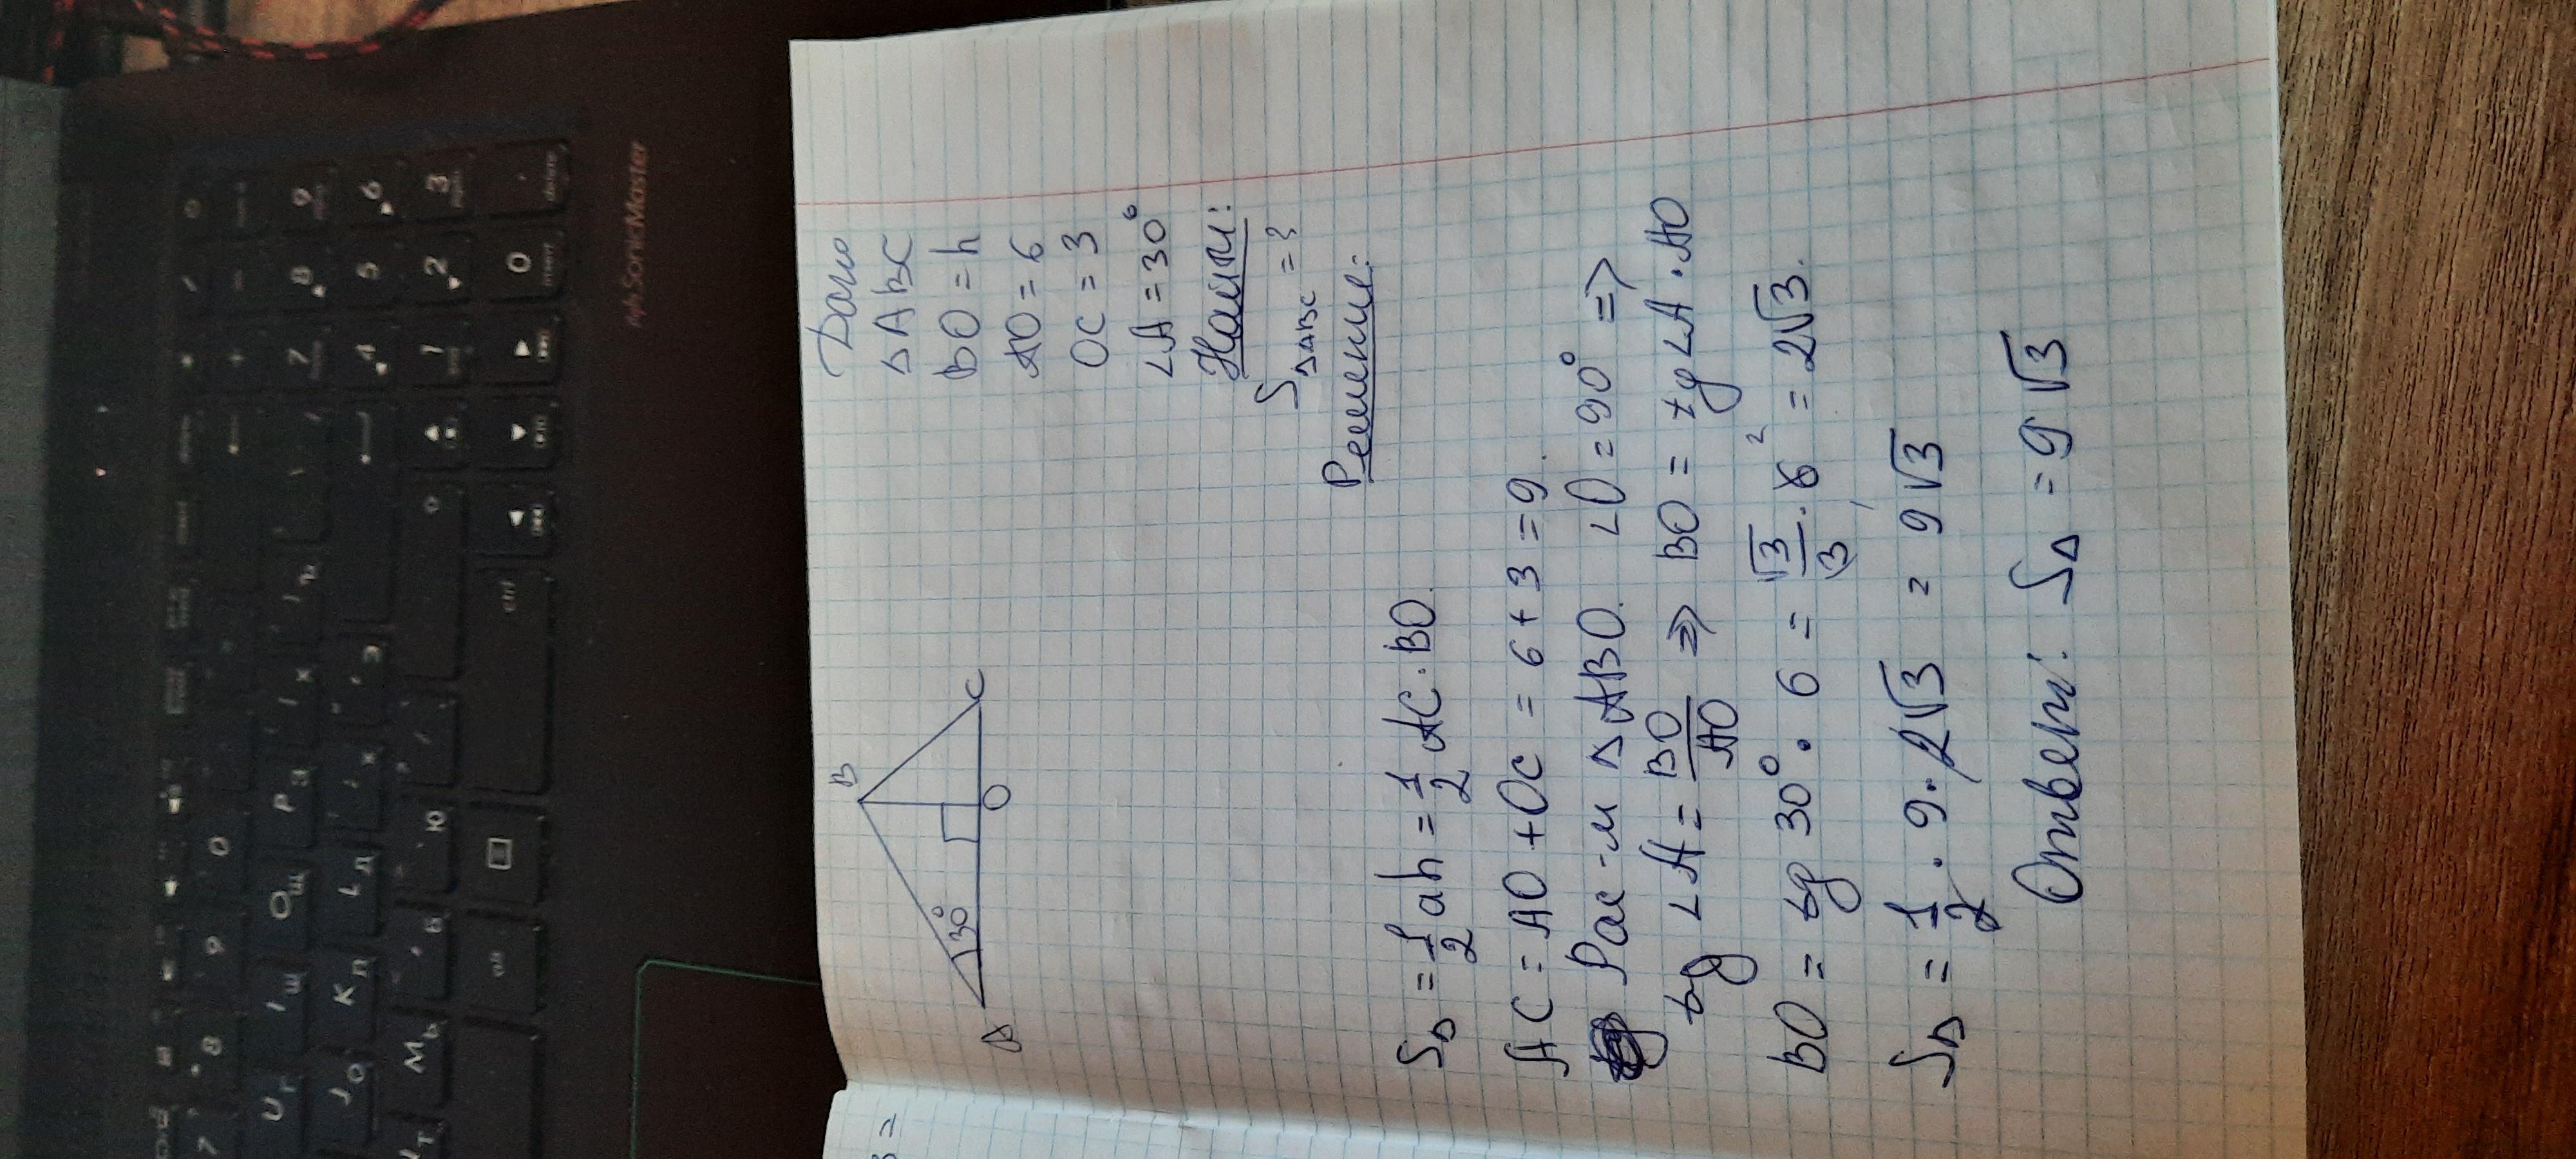 Дано
△ABC
BO = h
AO = 6
OC = 3
∠A = 30°
Найти:
S△ABC = ?
B
30°
A
O
C
Решение:
S△ = 1/2 ah = 1/2 AC · BO.
AC = AO + OC = 6 + 3 = 9.
Рас-м △ABO. ∠O = 90° =>
tg ∠A = BO/AO => BO = tg ∠A · AO
BO = tg 30° · 6 = √3/3 · 6 ² = 2√3.
S△ = 1/2 · 9 · 2√3 = 9√3
Ответ: S△ = 9√3
SonicMaster